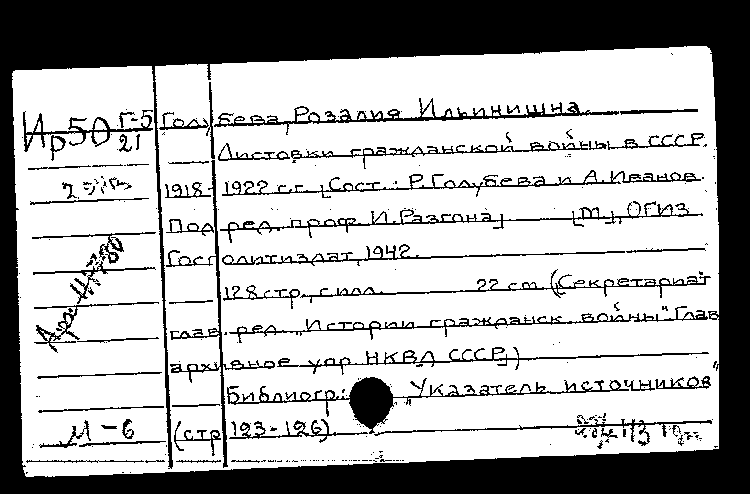 Ир50 Г-5
21
Голубева, Розалия Ильинишна
Листовки гражданской войны в СССР.
1918-1922 г.г. [Сост.: Р. Голубева и А. Иванов.
Под ред. проф. И. Разгона] [М.], ОГИЗ
Госполитиздат, 1942.
128 стр., с илл. 22 cm (Секретариат
глав. ред. "Истории гражданск. войны". Глав
архивное упр. НКВД СССР])
Библиогр: "Указатель источников"
(стр 123-126)
М-6